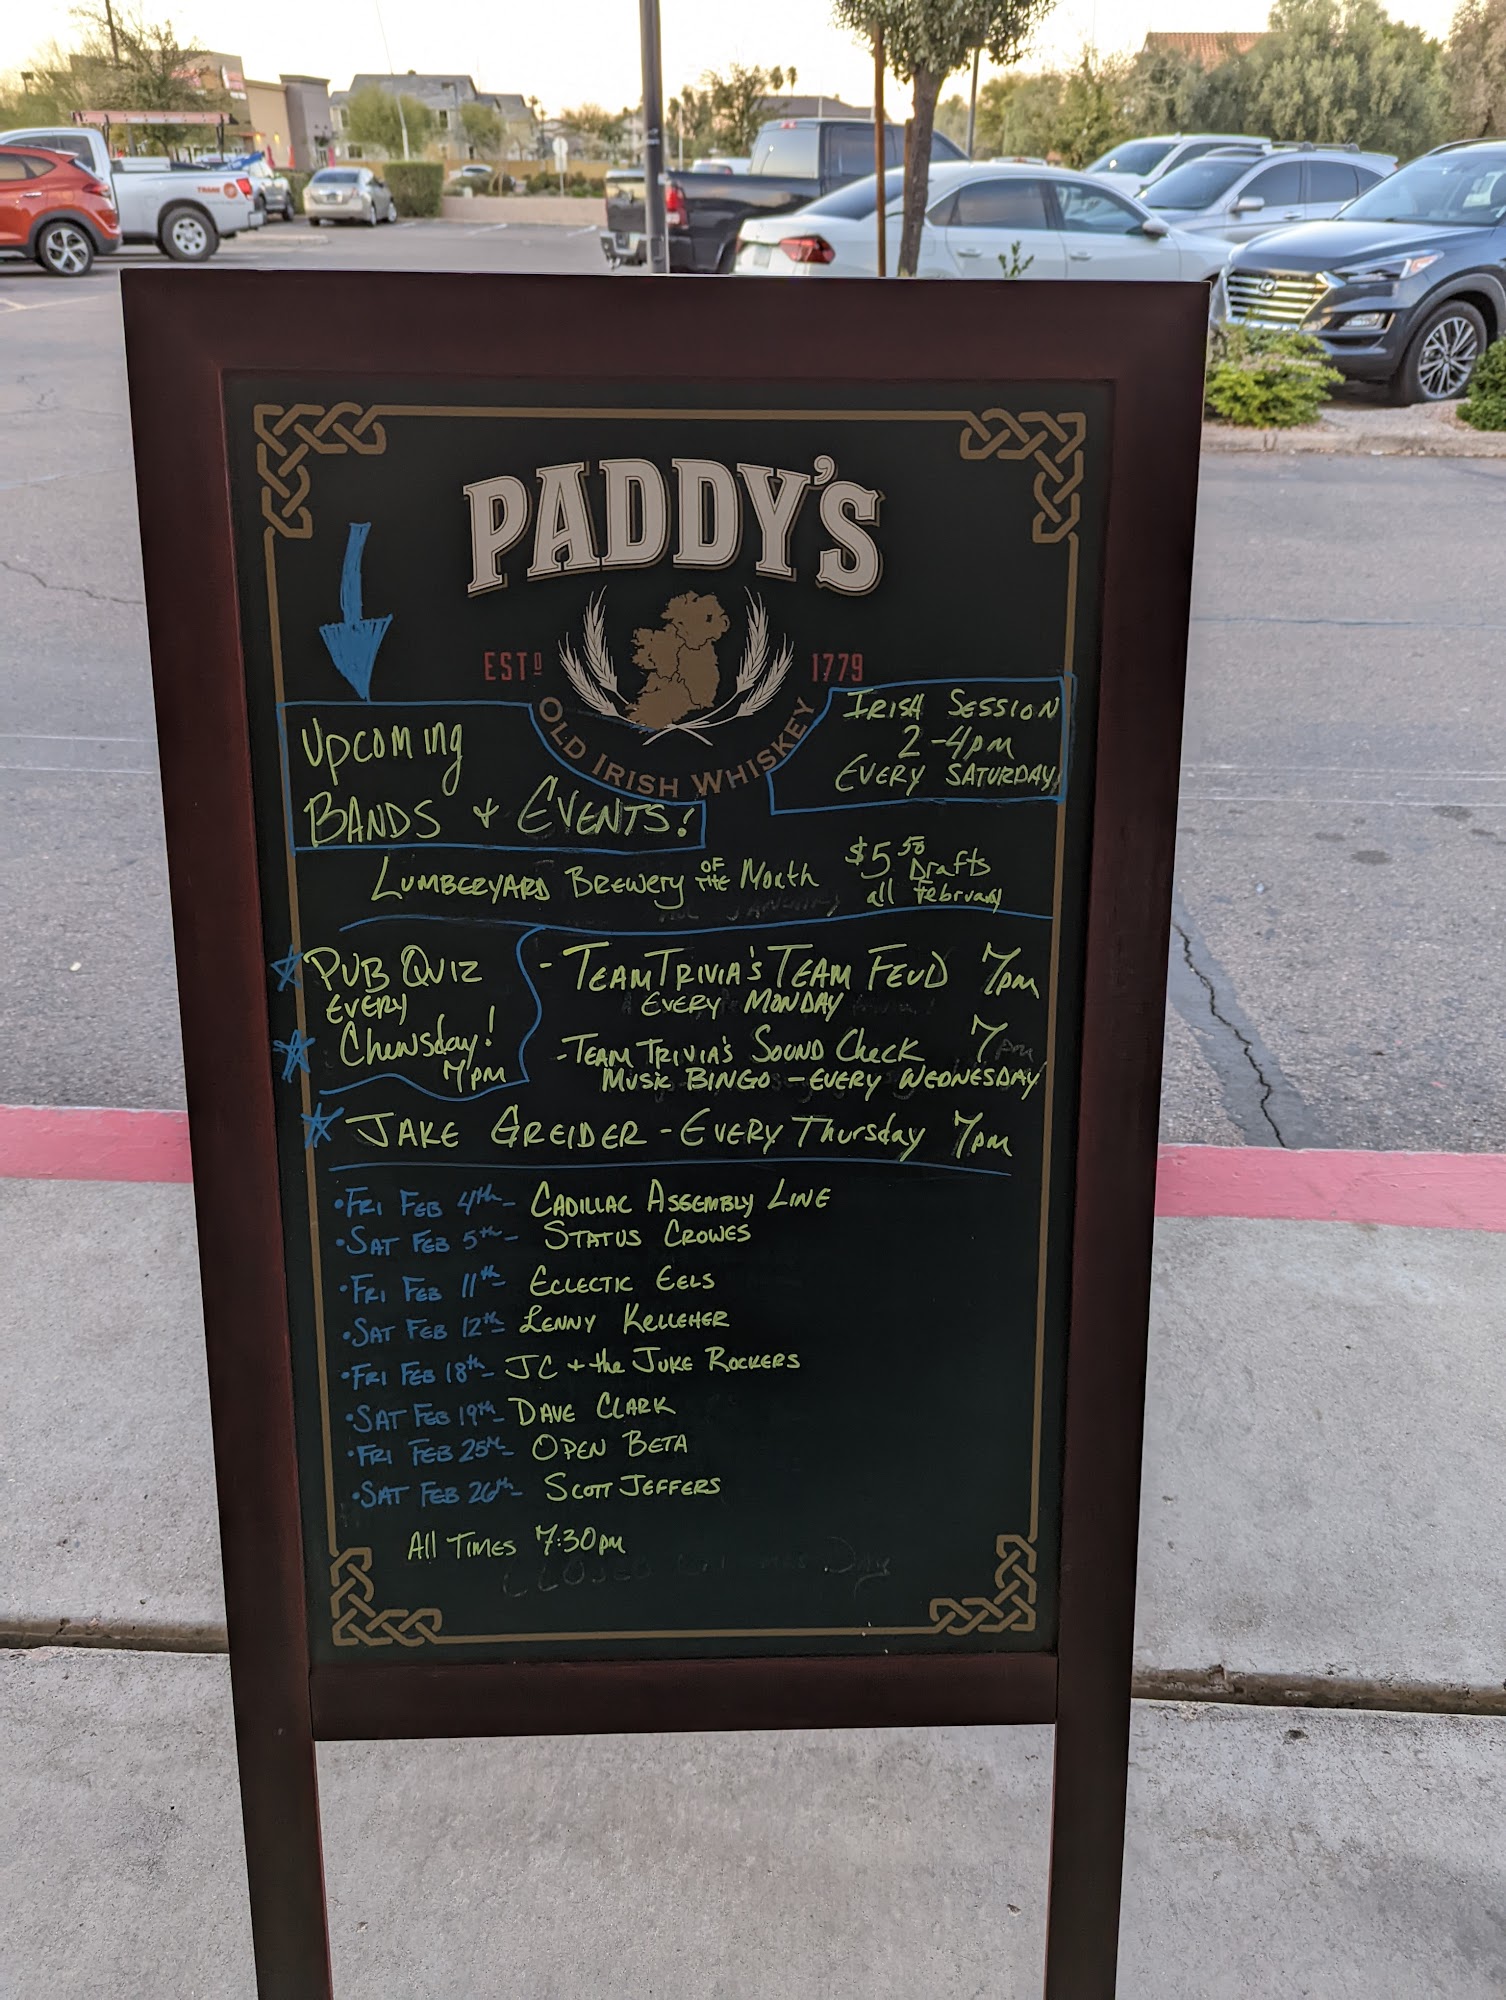 TRANE
PADDY'S
ESTD 1779
OLD IRISH WHISKEY
IRISH SESSION
2-4pm
EVERY SATURDAY
Upcoming
BANDS + EVENTS!
LUMBERYARD BREWERY OF THE Month
$5.50 Drafts
all February
PUB QUIZ
EVERY
Chewsday!
7pm
- TEAM TRIVIA'S TEAM FEUD 7pm
EVERY MONDAY
- TEAM TRIVIA'S SOUND CHECK 7pm
MUSIC BINGO - EVERY WEDNESDAY
JAKE GREIDER - EVERY Thursday 7pm
• FRI FEB 4th - CADILLAC ASSEMBLY LINE
• SAT FEB 5th - STATUS CROWES
• FRI FEB 11th - ECLECTIC EELS
• SAT FEB 12th - LENNY KELLEHER
• FRI FEB 18th - JC + the JUKE ROCKERS
• SAT FEB 19th - DAVE CLARK
• FRI FEB 25th - OPEN BETA
• SAT FEB 26th - SCOTT JEFFERS
All TIMES 7:30pm